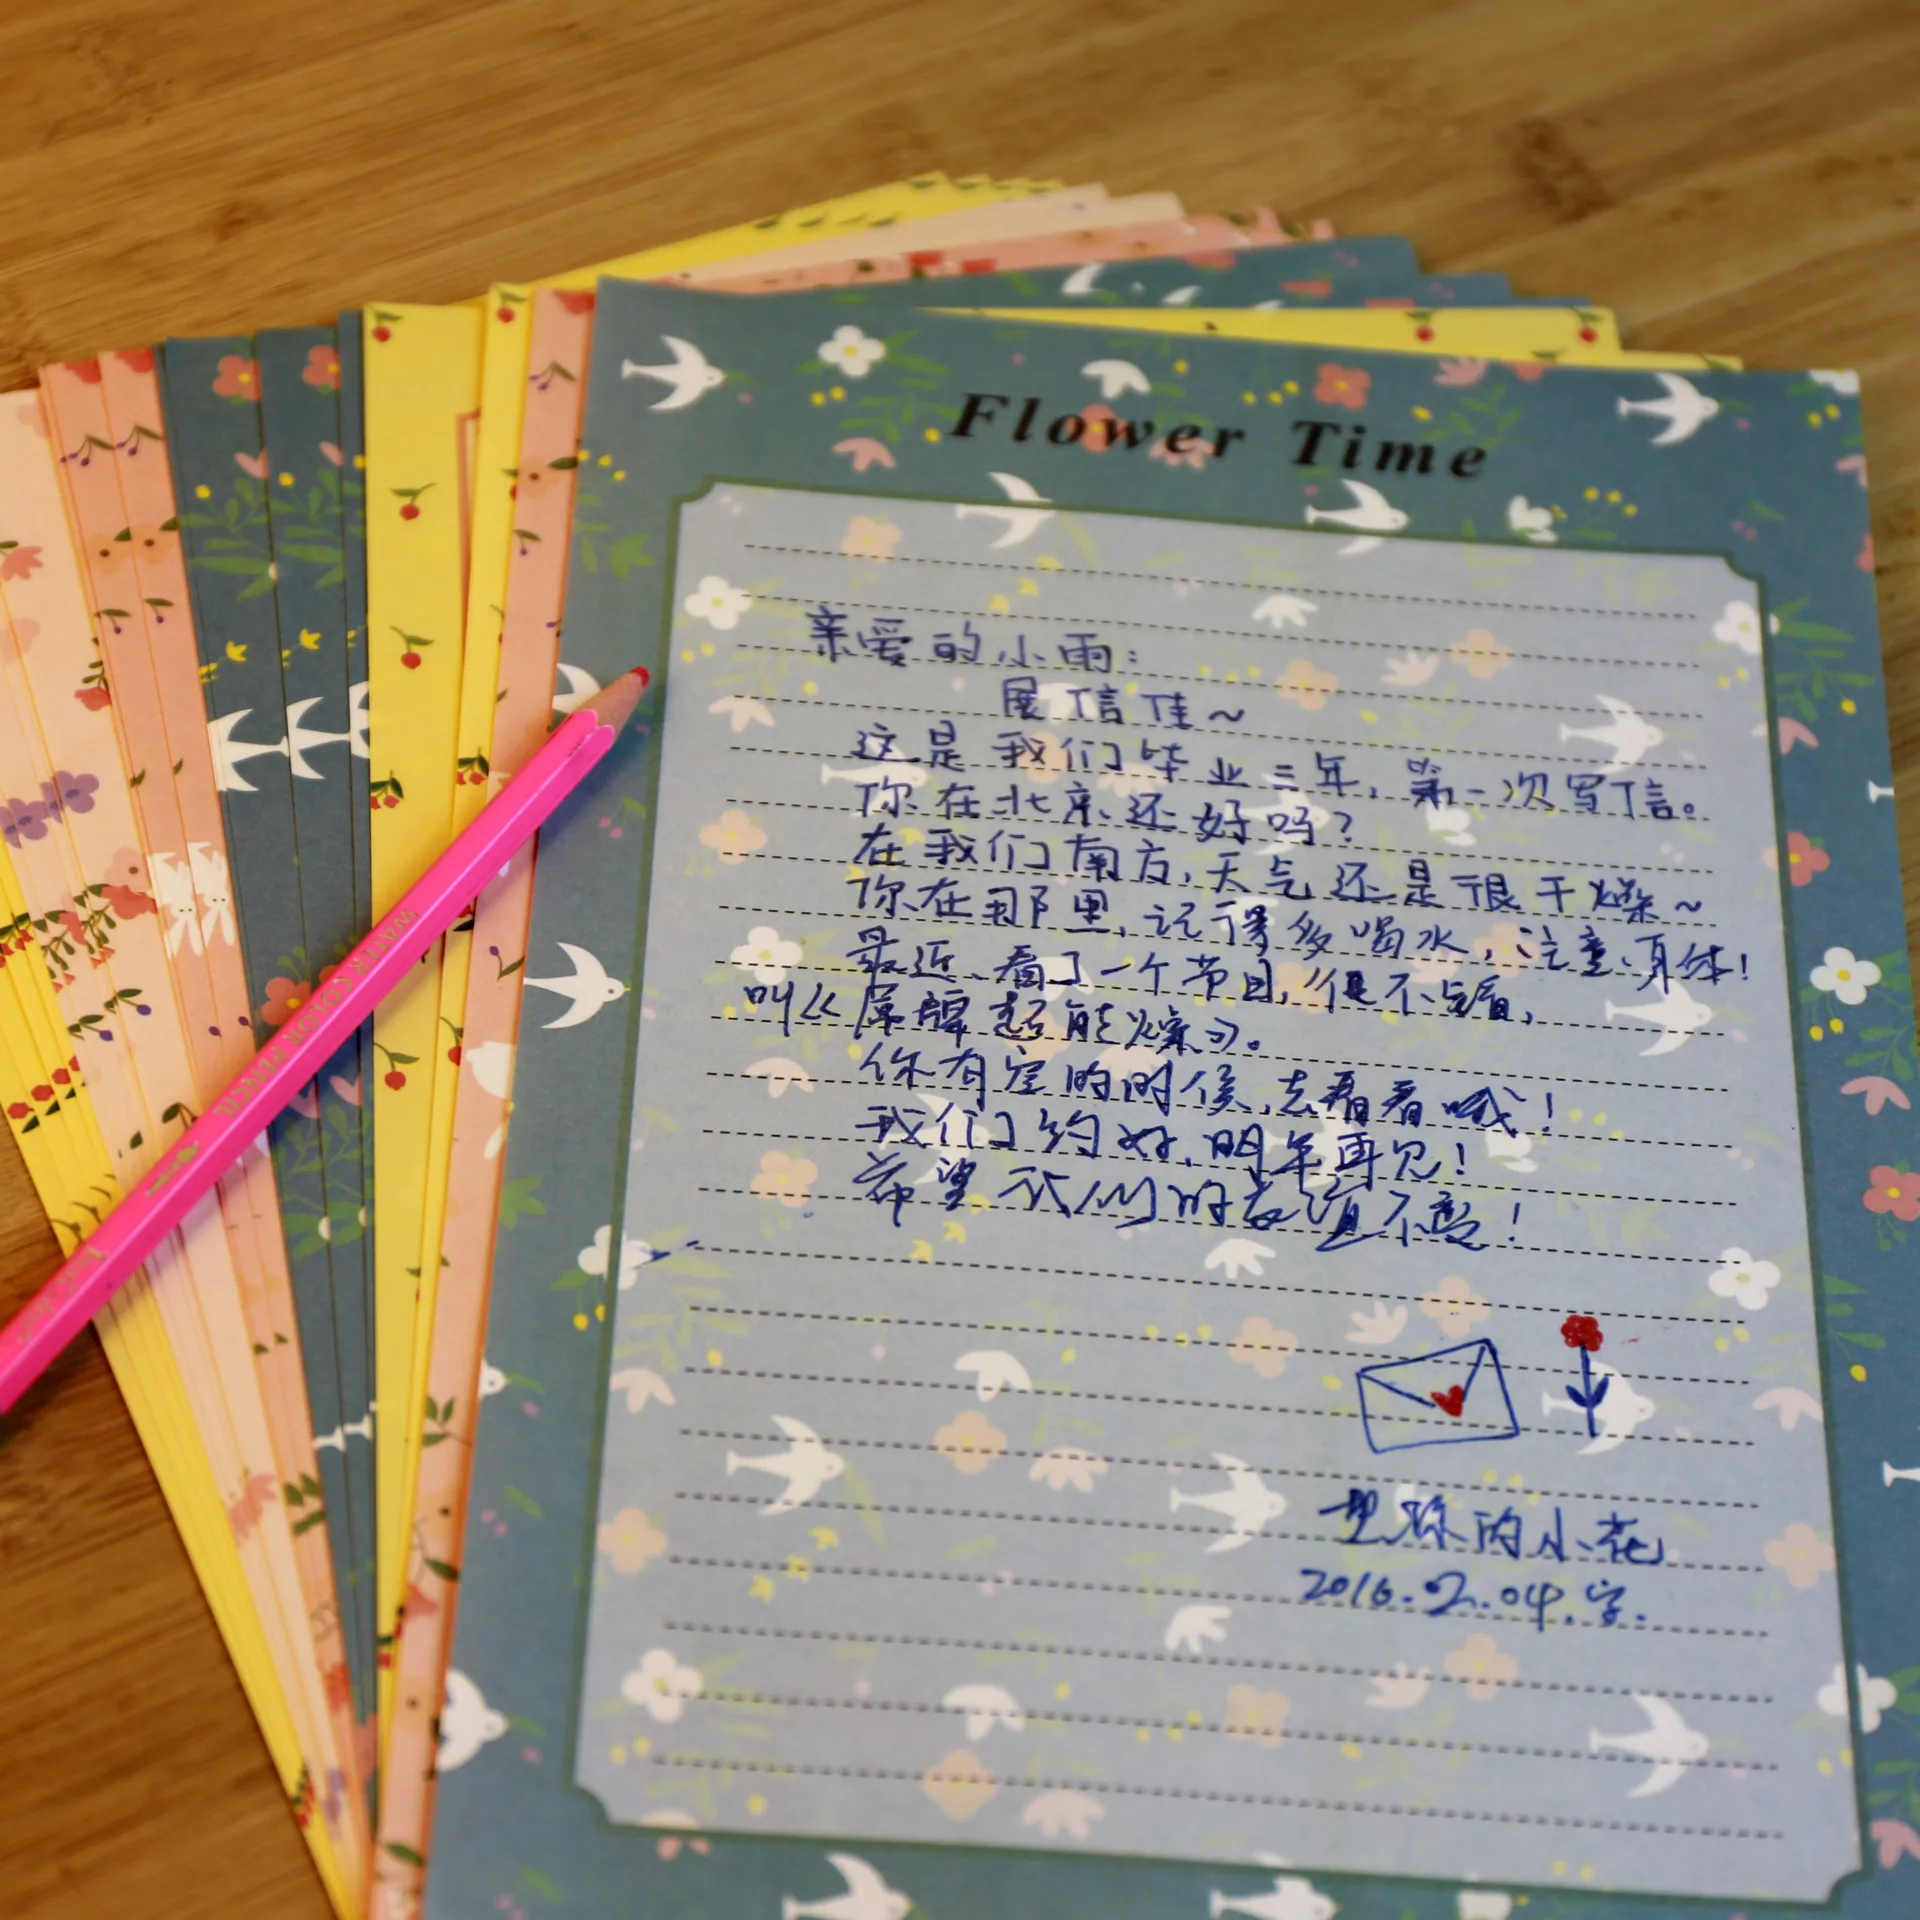 Flower Time
亲爱的小雨：
展信佳～
这是我们毕业三年，第一次写信。
你在北京还好吗？
在我们南方，天气还是很干燥～
你在那里，记得多喝水，注意身体！
最近、看了一个节目，很不错看，
叫《
你有空的时候，去看看哦！
我们约好，明年再见！
希望我们的友谊不变！
想你的小花
2016.2.04.字.
WATER COLOR PENCIL